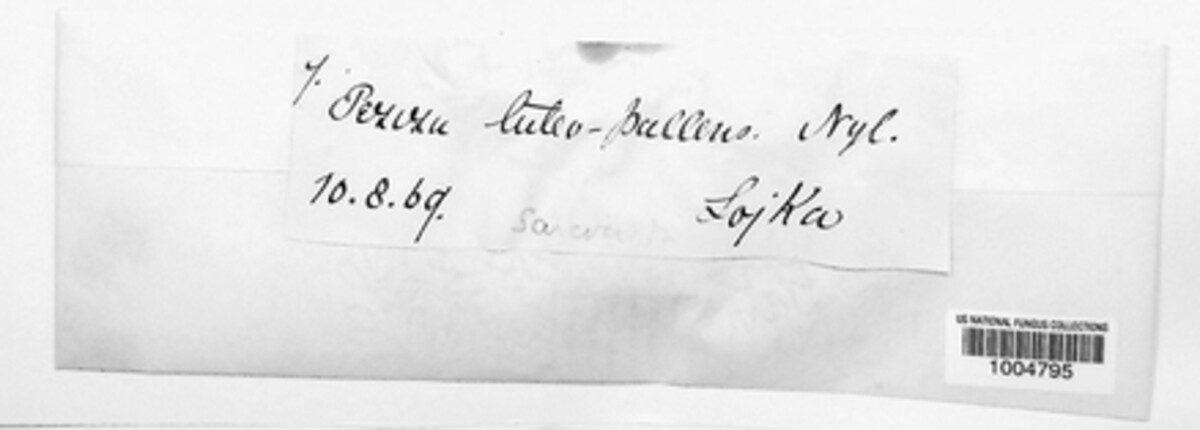 7.
Peziza luteo-pallens. Nyl.
10.8.69. Lojka
US NATIONAL FUNGUS COLLECTIONS
1004795